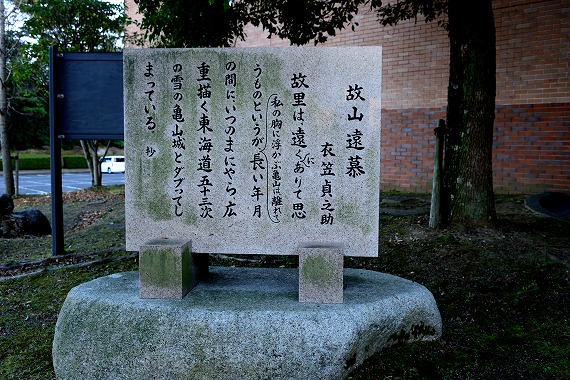 故山遠慕
衣笠貞之助
故里は、遠くにありて思
うものというが(私の胸に浮かぶ亀山は離れ)長い年月
の間にいつのまにやら広
重描く東海道五十三次
の雪の亀山城とダブってし
まっている。 抄